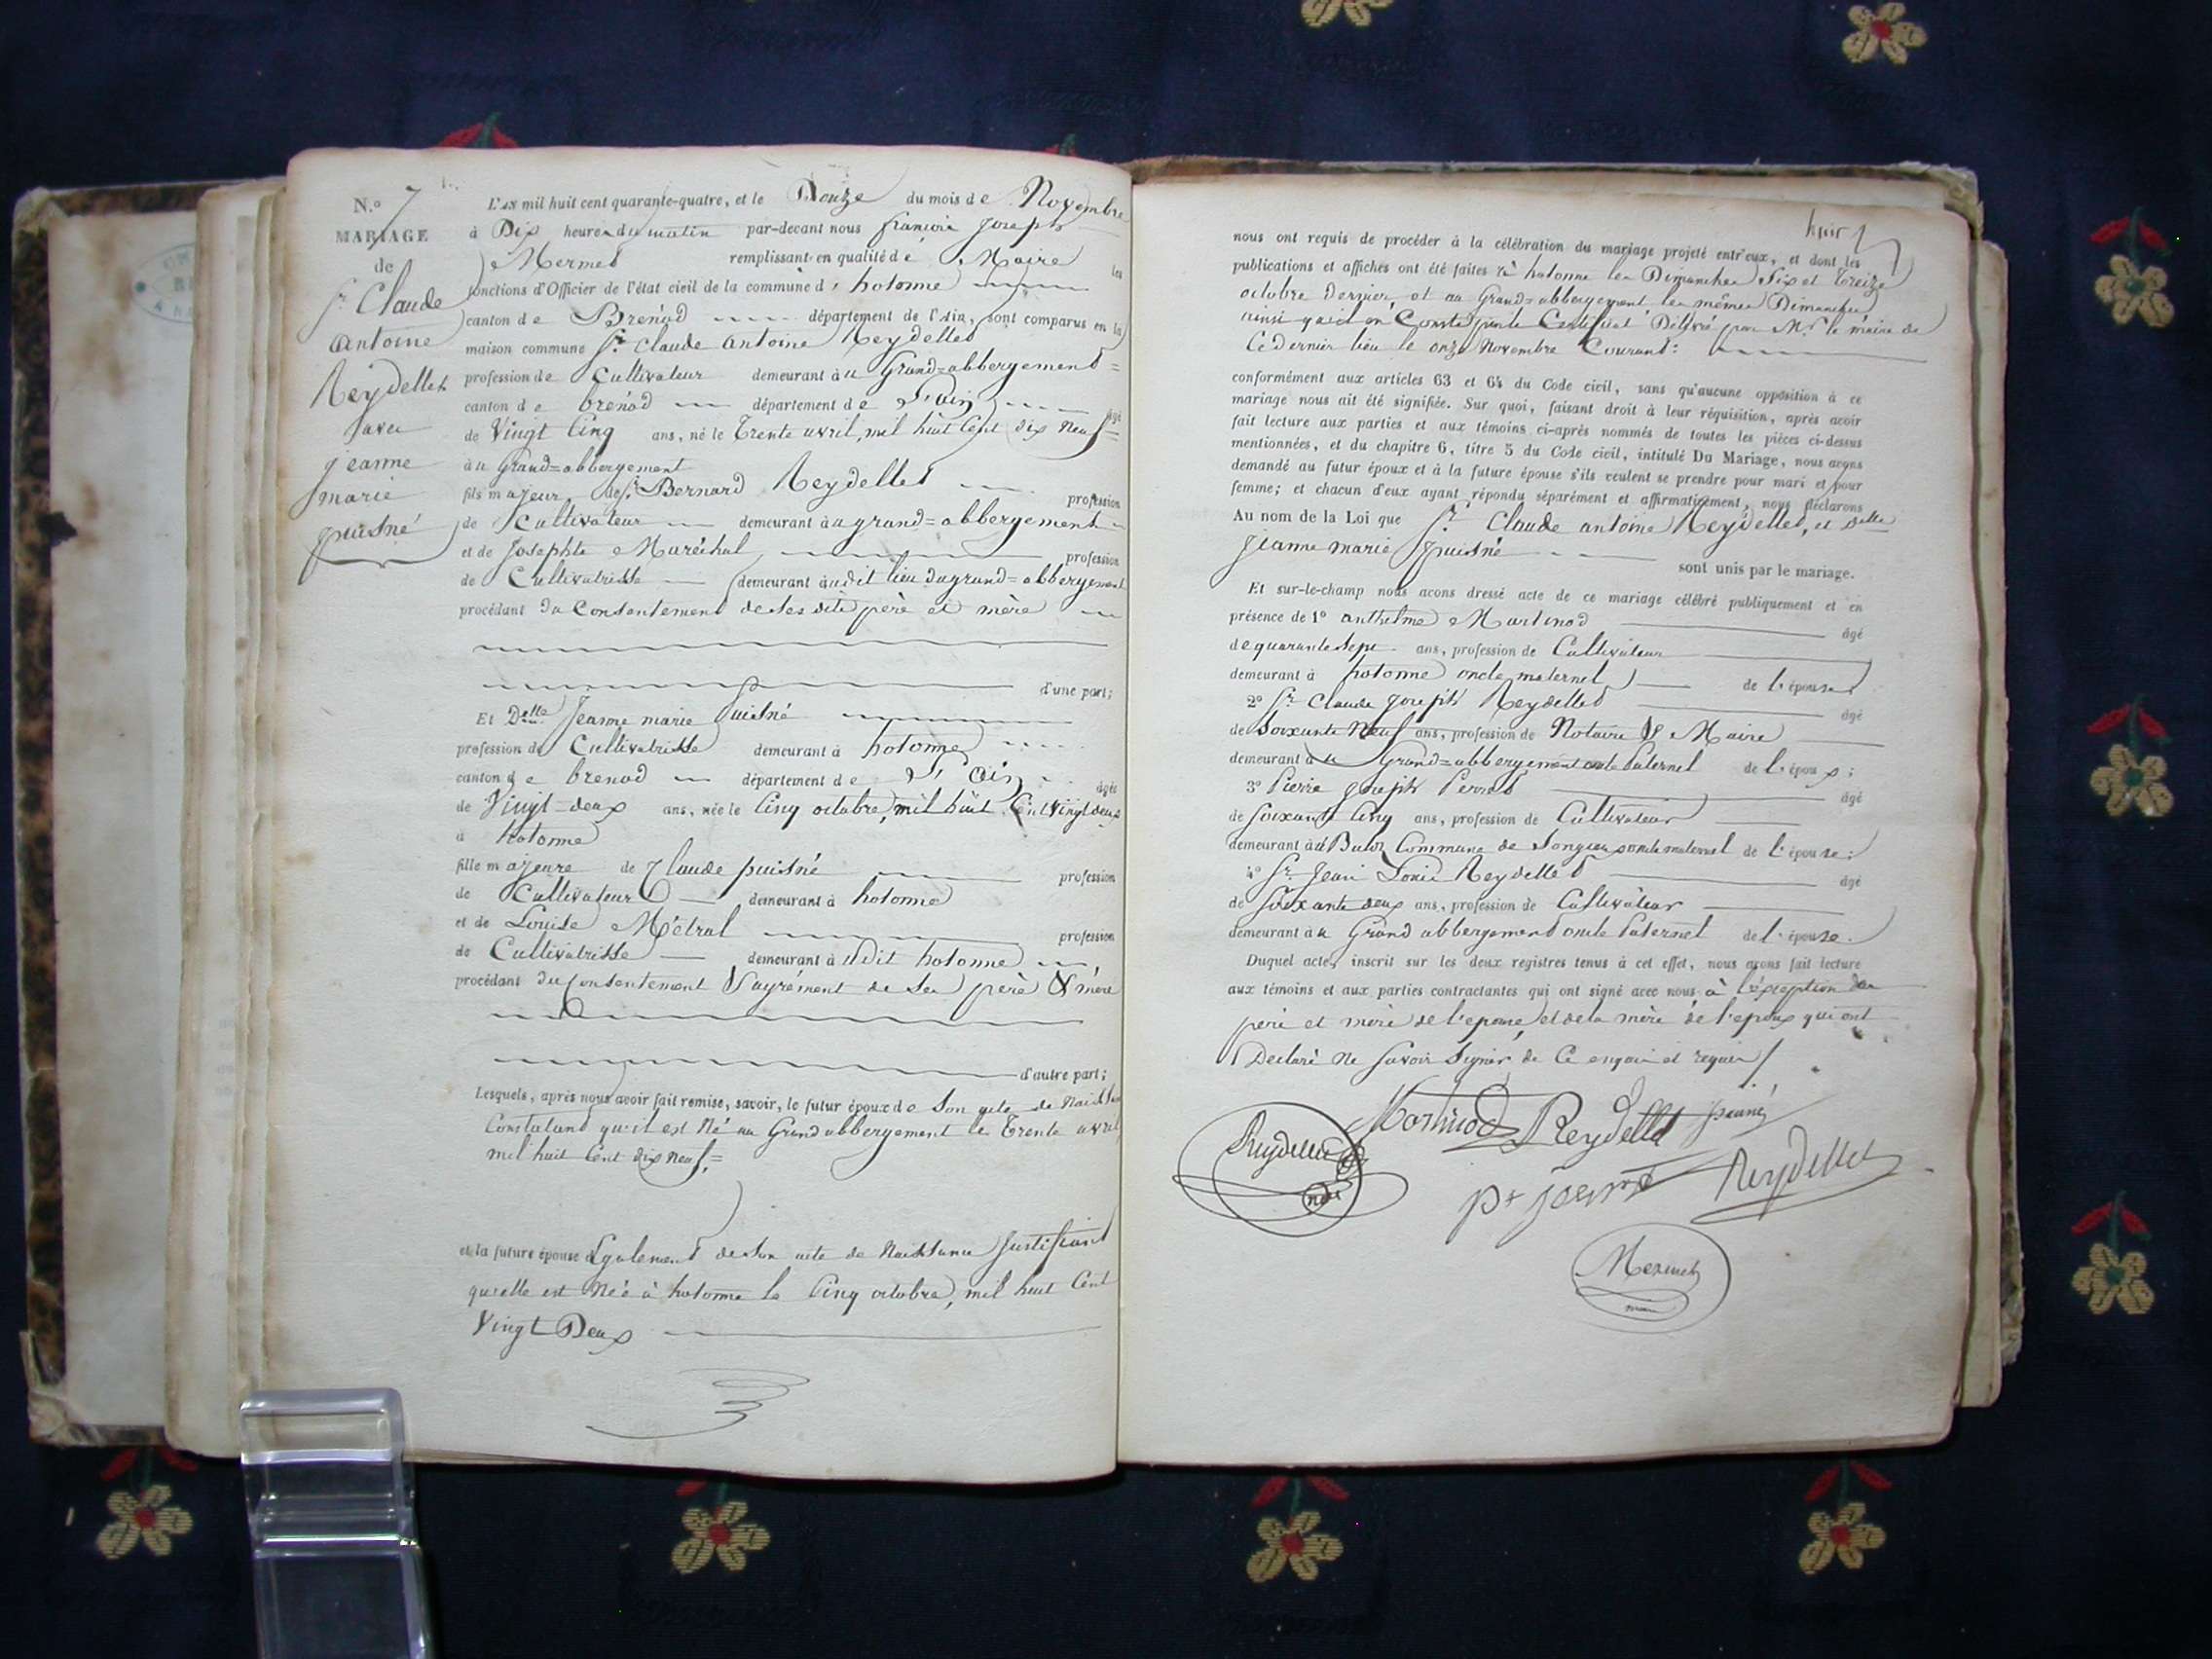 N.º 7
MARIAGE
de
Sr. Claude
Antoine
Reydellet
avec
jeanne
marie
puisné
L'AN mil huit cent quarante-quatre, et le Douze du mois de Novembre
à Dix heures du matin par-devant nous françois Joseph
Mermet remplissant en qualité de Maire les
fonctions d'Officier de l'état civil de la commune d'hotonne
canton de Brénod département de l'Ain, sont comparus en la
maison commune Sr. Claude Antoine Reydellet
profession de Cultivateur demeurant à u Grand=abbergement=
canton de brénod département de L'Ain âgé
de Vingt Cinq ans, né le Trente avril, mil huit Cent dix Neuf=
à u Grand=abbergement
fils majeur de Sr. Bernard Reydellet profession
de Cultivateur demeurant à u grand=abbergement
et de Josephte Maréchal profession
de Cultivatrisse demeurant àudit lieu du grand=abbergement
procédant du Consentement de ses dits père et mère
d'une part;
Et Delle Jeanne marie Puisné
profession de Cultivatrisse demeurant à hotonne
canton de brenod département de L'Ain âgée
de Vingt-deux ans, née le Cinq octobre, mil huit Cent Vingt deux
à hotonne
fille majeure de Claude puisné profession
de Cultivateur demeurant à hotonne
et de Louise Métral profession
de Cultivatrisse demeurant à udit hotonne
procédant du Consentement & agrément de ses père & mère
d'autre part;
Lesquels, après nous avoir fait remise, savoir, le futur époux de Son acte de Naissance
Constatant qu'il est Né au Grand abbergement le Trente avril
mil huit Cent dix neuf=
et la future épouse Egalement de son acte de Naissance Justifiant
qu'elle est Née à hotonne le Cinq octobre, mil huit Cent
Vingt Deux
huit
nous ont requis de procéder à la célébration du mariage projeté entr'eux, et dont les
publications et affiches ont été faites à hotonne les Dimanches Six et Treize
octobre dernier, et au Grand=abbergement les mêmes Dimanches
ainsi qu'il en Conste par le Certificat Délivré par Mr. le maire de
Ce dernier lieu le onze Novembre Courant:
conformément aux articles 63 et 64 du Code civil, sans qu'aucune opposition à ce
mariage nous ait été signifiée. Sur quoi, faisant droit à leur réquisition, après avoir
fait lecture aux parties et aux témoins ci-après nommés de toutes les pièces ci-dessus
mentionnées, et du chapitre 6, titre 5 du Code civil, intitulé Du Mariage, nous avons
demandé au futur époux et à la future épouse s'ils veulent se prendre pour mari et pour
femme; et chacun d'eux ayant répondu séparément et affirmativement, nous déclarons
Au nom de la Loi que Sr. Claude antoine Reydellet, et Delle
Jeanne marie puisné
sont unis par le mariage.
Et sur-le-champ nous avons dressé acte de ce mariage célébré publiquement et en
présence de 1º anthelme Martinod âgé
de quarante sept ans, profession de Cultivateur
demeurant à hotonne oncle maternel de l'épouse
2º Sr. Claude Joseph Reydellet âgé
de Soixante Neuf ans, profession de Notaire & Maire
demeurant à u Grand=abbergement oncle Paternel de l'époux;
3º Pierre Joseph Perret âgé
de Soixante Cinq ans, profession de Cultivateur
demeurant à Commune de Songieu oncle maternel de l'épouse;
4º Sr. Jean Louis Reydellet âgé
de Soixante deux ans, profession de Cultivateur
demeurant à u Grand abbergement oncle Paternel de l'épouse.
Duquel acte, inscrit sur les deux registres tenus à cet effet, nous avons fait lecture
aux témoins et aux parties contractantes qui ont signé avec nous à l'exception des
père et mère de l'epouse, et de la mère de l'epoux qui ont
Déclaré Ne Savoir Signer, de Ce enquis et requis
Martinod Reydellet
Reydellet Reydellet
Mermet